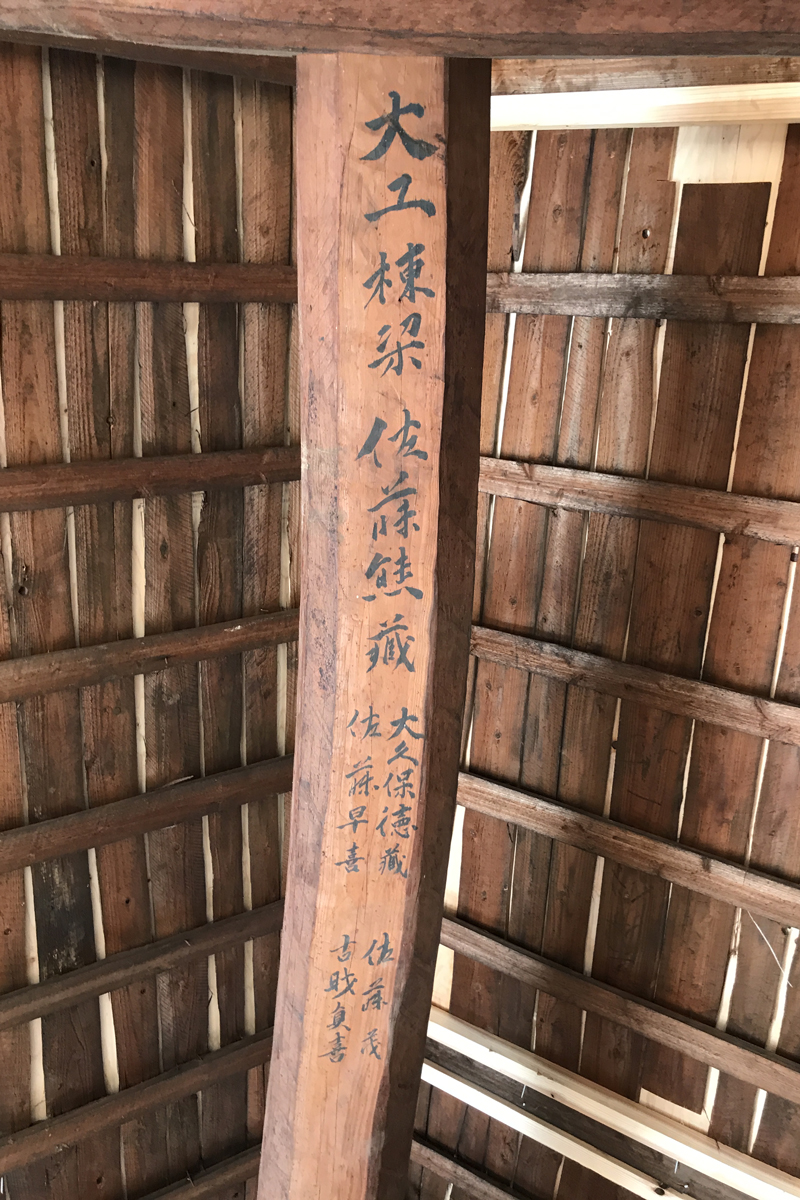 大工棟梁 佐藤熊藏
大久保徳藏
佐藤早喜
佐藤茂
古 喜